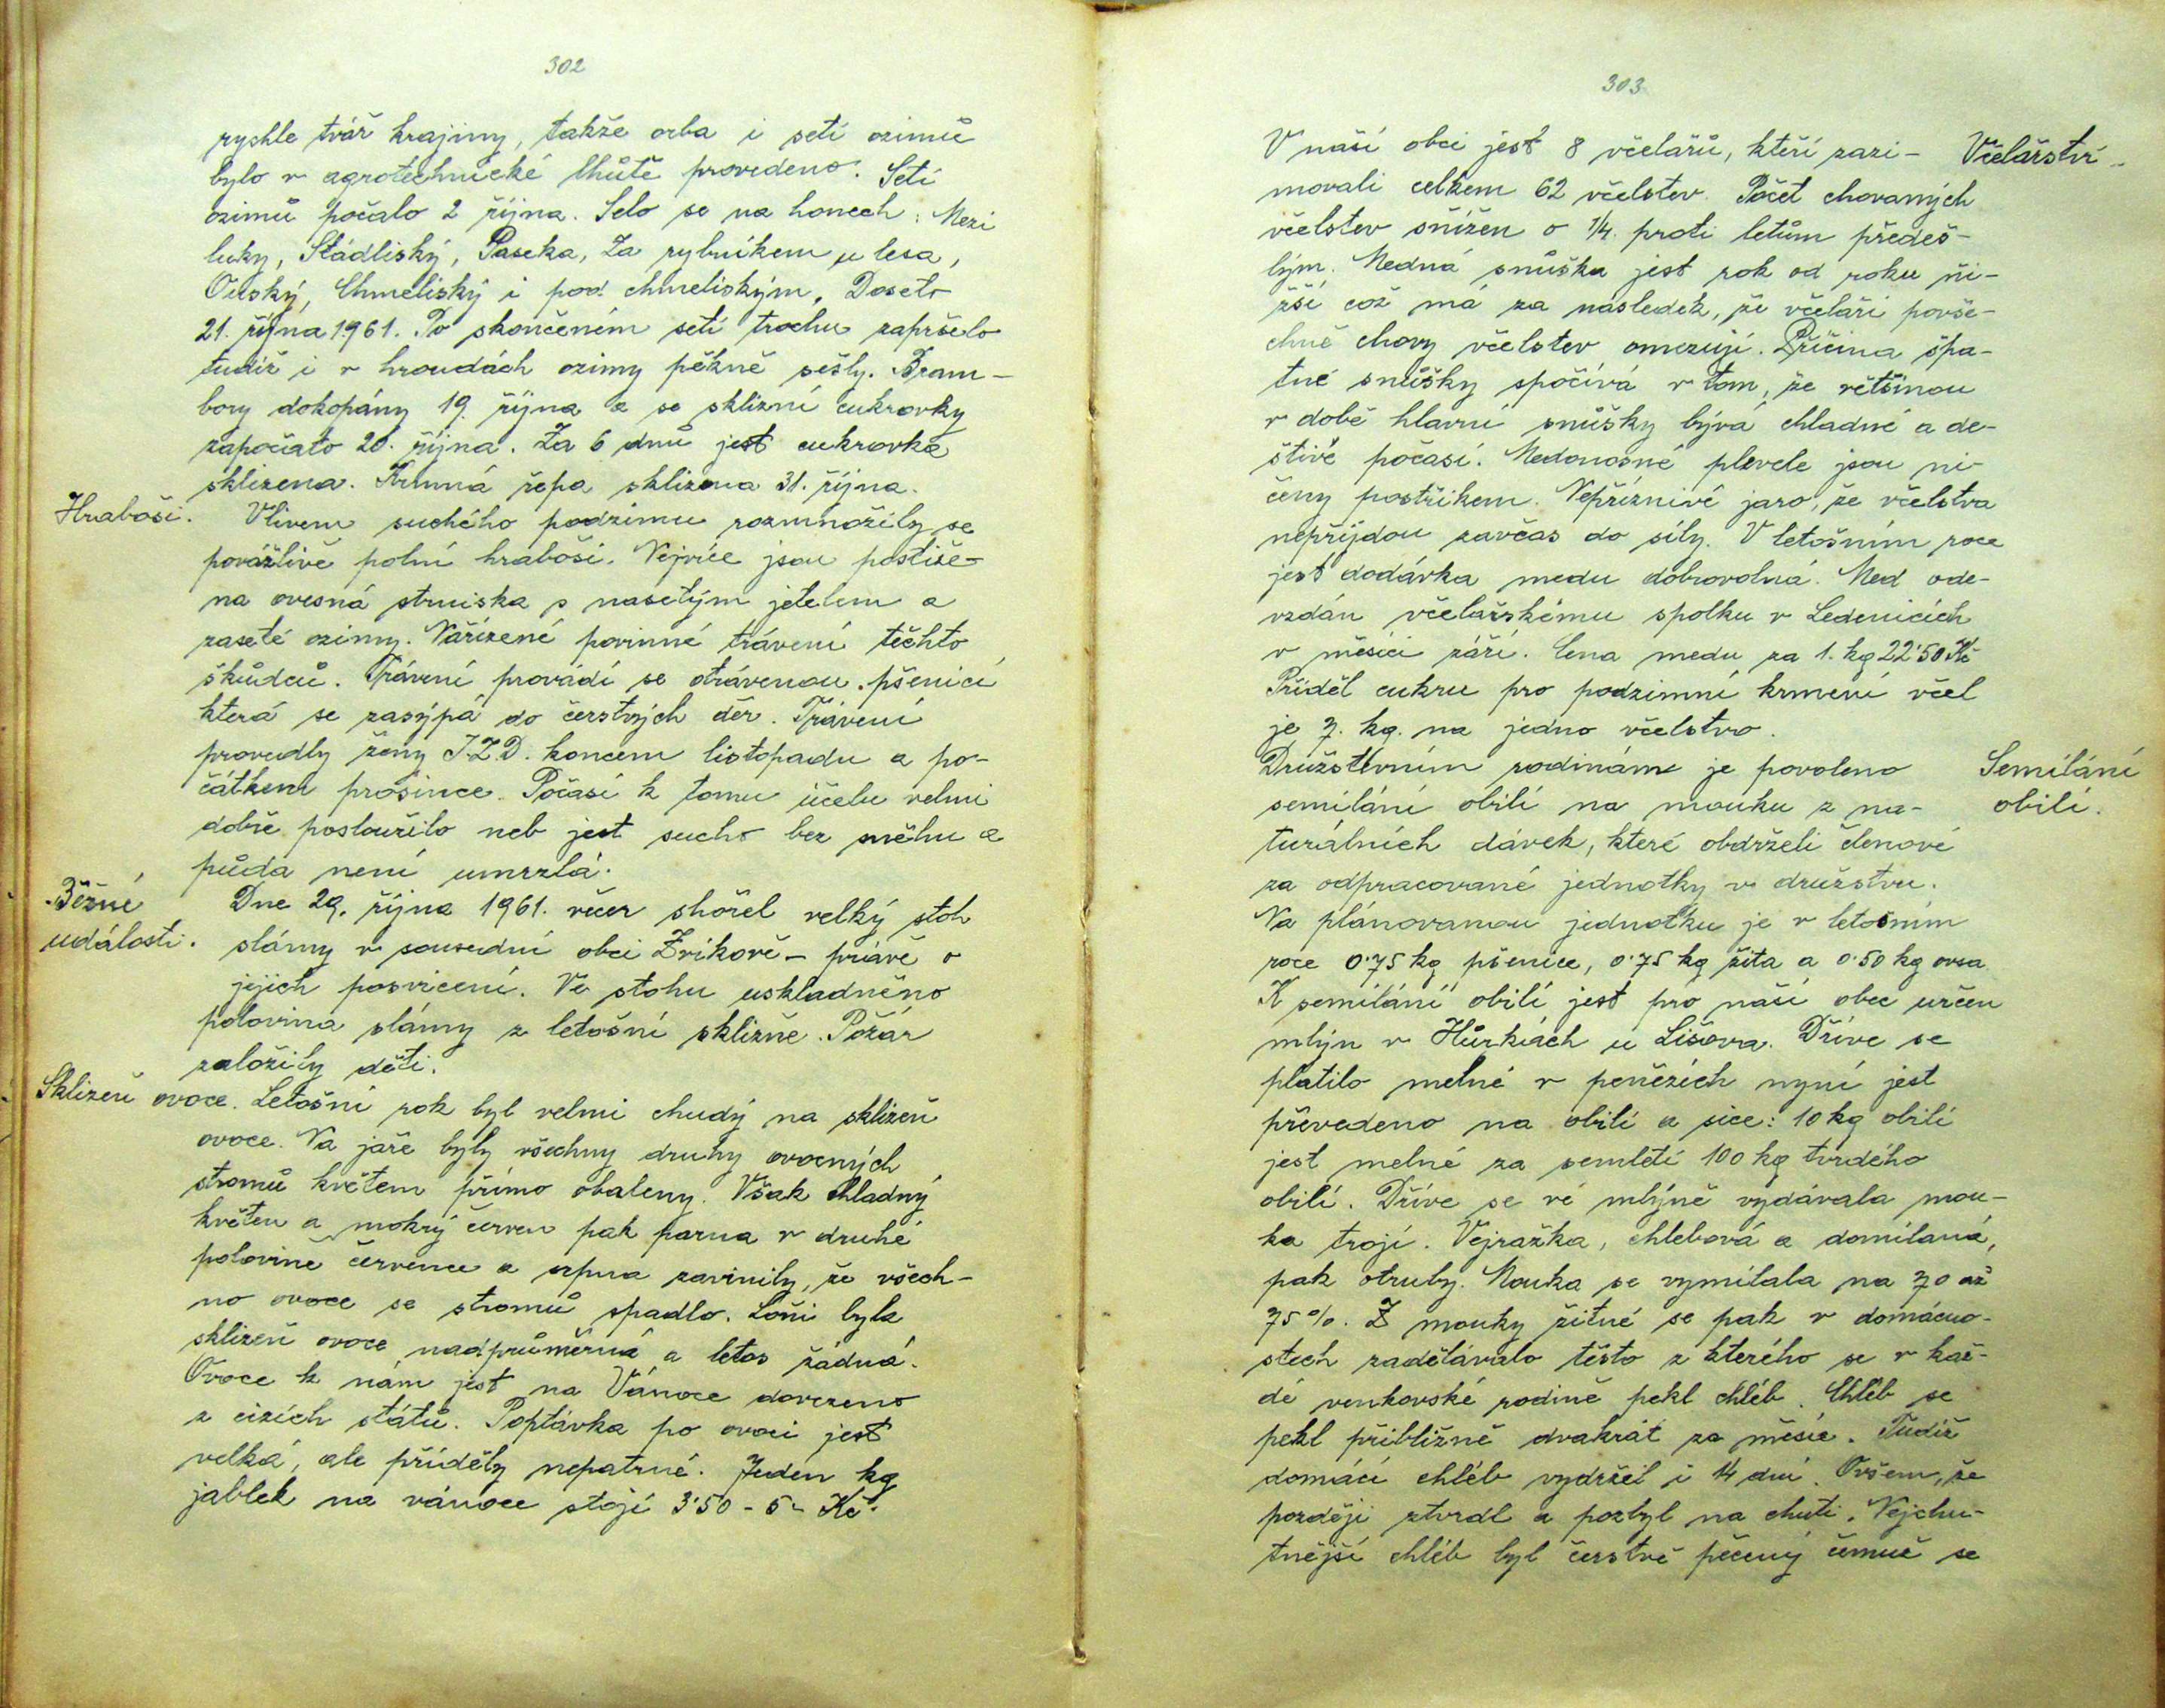 302
rychle tvář krajiny, takže orba i setí ozimů
bylo v agrotechnické lhůtě provedeno. Setí
ozimů počalo 2 října. Selo se na honech: Mezi
luky, Stádliský, Paseka, Za rybníkem u lesa,
Chmeliský i pod chmeliským. Doseto
21. října 1961. Po skončeném setí trochu zapršelo
tudíž i v hroudách ozimy pěkně sešly. Bram-
bory dokopány 19. října a se sklizní cukrovky
započato 20. října. Za 6 dnů jest cukrovka
sklizena. Krmná řepa sklizena 31. října.
Hraboši. Vlivem suchého podzimu rozmnožily se
povážlivě polní hraboši. Nejvíce jsou postiže-
na ovesná strniska s nasetým jetelem a
zaseté ozimy. Nařízené povinné trávení těchto
škůdců. Trávení provádí se otrávenou pšenicí
která se zasýpá do čerstvých děr. Trávení
provedly ženy J.Z.D. koncem listopadu a po-
čátkem prosince. Počasí k tomu účelu velmi
dobře posloužilo neb jest sucho bez sněhu a
půda není umrzlá.
Běžné Dne 29. října 1961. večer shořel velký stoh
události. slámy v sousední obci Zvíkově - právě o
jejich posvícení. Ve stohu uskladněno
polovina slámy z letošní sklizně. Požár
založily děti.
Sklizeň ovoce. Letošní rok byl velmi chudý na sklizeň
ovoce. Na jaře byly všechny druhy ovocných
stromů květem přímo obaleny. Však chladný
květen a mokrý červen pak parna v druhé
polovině července a srpna zavinily, že všech-
no ovoce se stromů spadlo. Loňi byla
sklizeň ovoce nadprůměrná a letos žádná.
Ovoce k nám jest na Vánoce dovezeno
z cizích států. Poptávka po ovoci jest
velká, ale příděly nepatrné. Jeden kg
jablek na vánoce stojí 3·50 - 5- Kč.
303
V naší obci jest 8 včelařů, kteří zazi- Včelařství.
movali celkem 62 včelstev. Počet chovaných
včelstev snížen o 1/4. proti letům předeš-
lým. Medná snůška jest rok od roku ni-
žší což má za následek, že včelaři povše-
chně chovy včelstev omezují. Příčina špa-
tné snůšky spočívá v tom, že většinou
v době hlavní snůšky bývá chladné a de-
štivé počasí. Medonosné plevele jsou ni-
čeny postřikem. Nepříznivé jaro, že včelstva
nepřijdou zavčas do síly. V letošním roce
jest dodávka medu dobrovolná. Med ode-
vzdán včelařskému spolku v Ledenicích
v měsíci září. Cena medu za 1. kg 22·50 Kč
Příděl cukru pro podzimní krmení včel
je 7. kg. na jedno včelstvo.
Družstevním rodinám je povoleno Semílání
semílání obilí na mouku z na- obilí.
turálních dávek, které obdrželi členové
za odpracované jednotky v družstvu.
Na plánovanou jednotku je v letošním
roce 0·75 kg pšenice, 0·75 kg žita a 0·50 kg ovsa.
K semílání obilí jest pro naší obec určen
mlýn v Hůrkách u Lišova. Dříve se
platilo melné v penězích nyní jest
převedeno na obilí a sice: 10 kg obilí
jest melné za semletí 100 kg tvrdého
obilí. Dříve se ve mlýně vydávala mou-
ka trojí. Vejražka, chlebová a domílaná,
pak otruby. Mouka se vymílala na 70 až
75%. Z mouky žitné se pak v domácno-
stech zadělávalo těsto z kterého se v kaž-
dé venkovské rodině pekl chléb. Chléb se
pekl přibližně dvakrát za měsíc. Tudíž
domácí chléb vydržel i 14 dní. Ovšem, že
později ztvrdl a pozbyl na chuti. Nejchu-
tnější chléb byl čerstvě pečený čemuž se